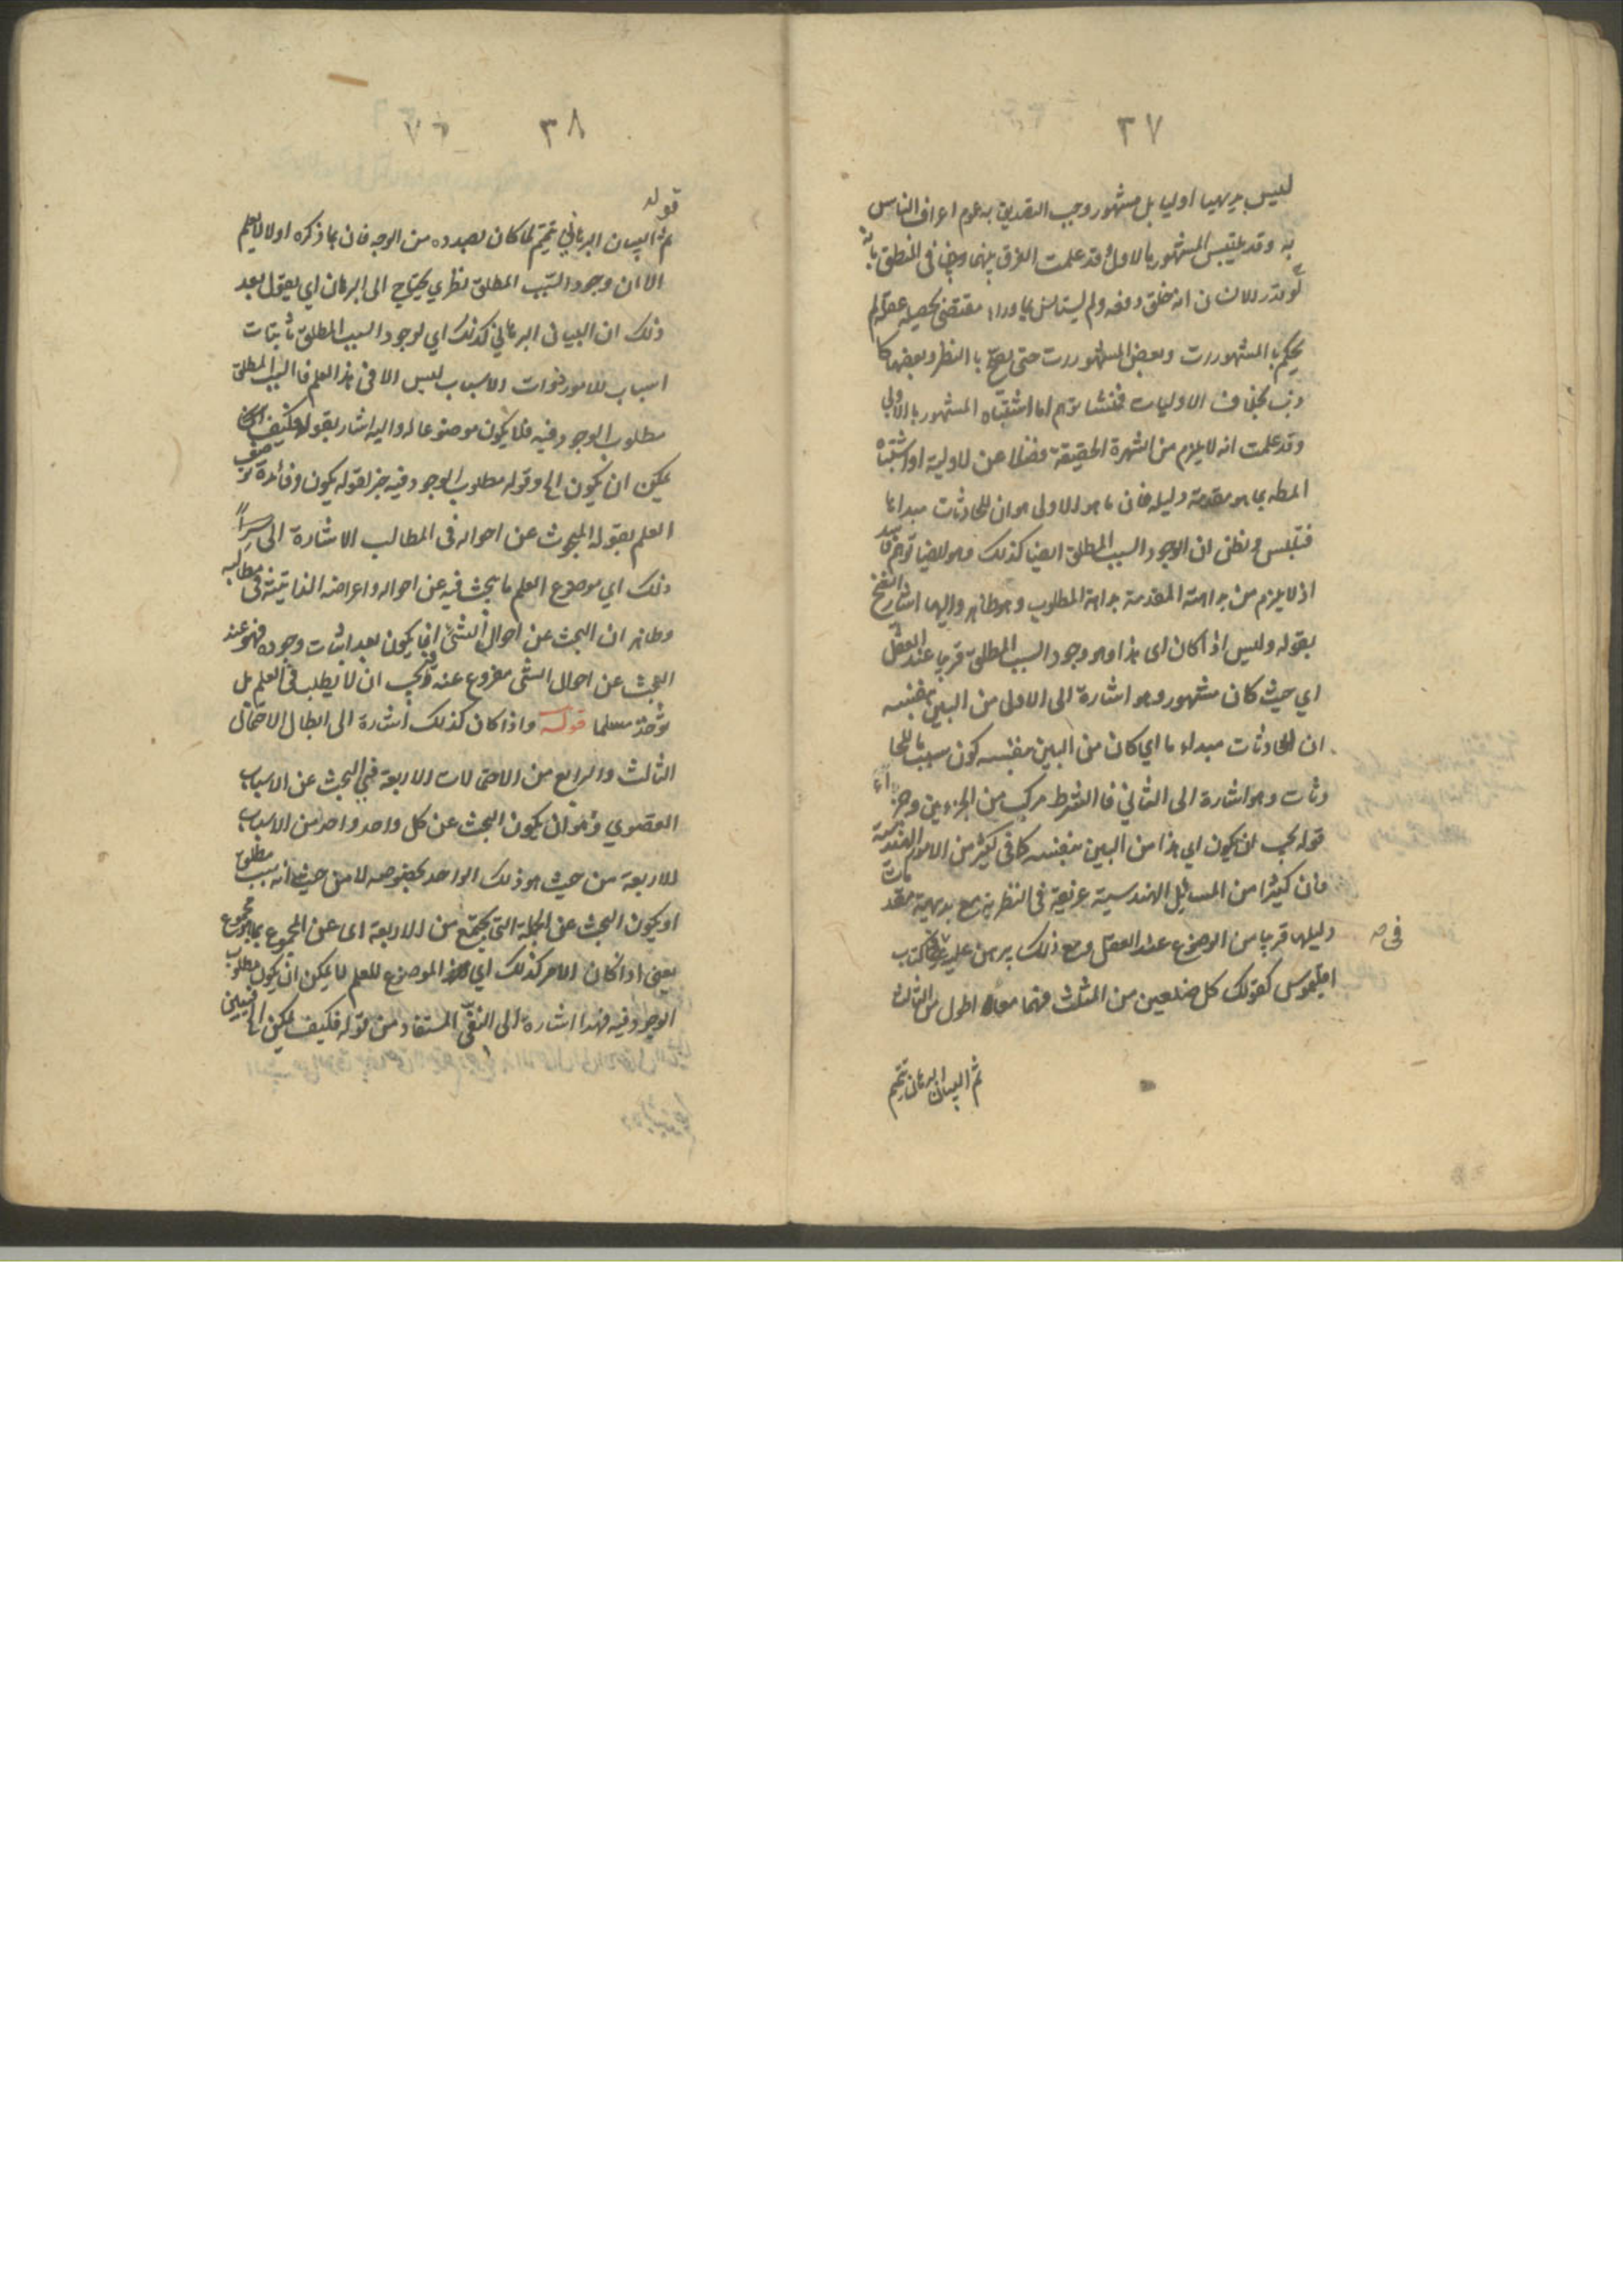 ٣٧
ليس بديهيا اوليا بل مشهور وجب التصديق به عوم اعراف الناس
به وقد يلتبس المشهور بالاول وقد علمت الفرق بينهما في المنطق بانه
لو قدر للانسان انه خلق دفعه ولم يستانس بما وراء مقتضى عقله لم
يحكم بالمشهورات وبعض المشهورات حتى يصح بالنظر وبعضها كا
ذب بخلاف الاوليات فمنشا توهم اما اشتباه المشهور بالاولي
وقد علمت انه لا يلزم من الشهرة الحقيقة فضلا عن الاولية او اشتباه
المط بما هو مقدمة دليله فان ما هو الاولى هو ان للحادثات مبدا ما
فتلبس ونظن ان الوجود السبب المطلق ايضا كذلك وهو ايضا توهم فاسد
اذ لا يلزم من بداهة المقدمة بداهة المطلوب وهو ظاهر واليهما اشار الشيخ
بقوله وليس اذا كان اى هذا وهو وجود السبب المطلق قريبا عند العقل
اي حيث كان مشهور وهو اشارة الى الاولى من البين بنفسه
ان للحادثات مبداء ما اي كان من البين بنفسه كون سبب ما للحا
دثات وهو اشارة الى الثاني فالشرط مركب من الجزءين وجزاء
قوله يجب ان يكون اي هذا من البين بنفسه كما في كثير من الامور الهندسية
فان كثيرا من المسائل الهندسية عريقة في النظرية مع بديهية مقدمات
دليلها قريبا من الوضوع عند العقل ومع ذلك يبرهن عليه في كتاب
فى صه
اقليدس كقولك كل ضلعين من المثلث فهما معا اطول من الثالث
ثم البيان البرهان تتميم
٣٨
قوله
ثم البيان البرهاني تتميم لما كان بصدده من الوجه فان بما ذكره اولا لا يعلم
الا ان وجود السبب المطلق نظري يحتاج الى البرهان اي يقول بعد
ذلك ان البيان البرهاني كذلك اي لوجود السبب المطلق باثبات
اسباب للامور ذوات الاسباب ليس الا في هذا العلم فالسبب المطلق
مطلوب الوجود فيه فلا يكون موضوعا له واليه اشار بقوله فكيف
يمكن ان يكون الخ وقوله مطلوب الوجود فيه خبر لقوله يكون وفائدة توصيف
العلم بقوله المبحوث عن احواله في المطالب الاشارة الى سراً
ذلك اي موضوع العلم ما يبحث فيه عن احواله واعراضه الذاتية في مطالبه
وظاهر ان البحث عن احوال الشئ انما يكون بعد اثبات وجوده فهو عند
البحث عن احوال الشئ مفروغ عنه فيجب ان لا يطلب في العلم بل
يؤخذ مسلما قوله واذا كان كذلك اشارة الى ابطال الاحتمالى
الثالث والرابع من الاحتمالات الاربعة في البحث عن الاسباب
القصوي وهو ان يكون البحث عن كل واحد واحد من الاسباب
الاربعة من حيث هو ذلك الواحد بخصوصه لا من حيث انه سبب مطلق
او يكون البحث عن الجملة التى تجتمع من الاربعة اى عن المجموع بما هو مجموع
يعنى اذا كان الامر كذلك اي الموضوع للعلم لا يمكن ان يكون مطلوب
الوجود فيه فهذا اشارة الى النفى المستفاد من قوله فكيف يمكن الخ فتبين